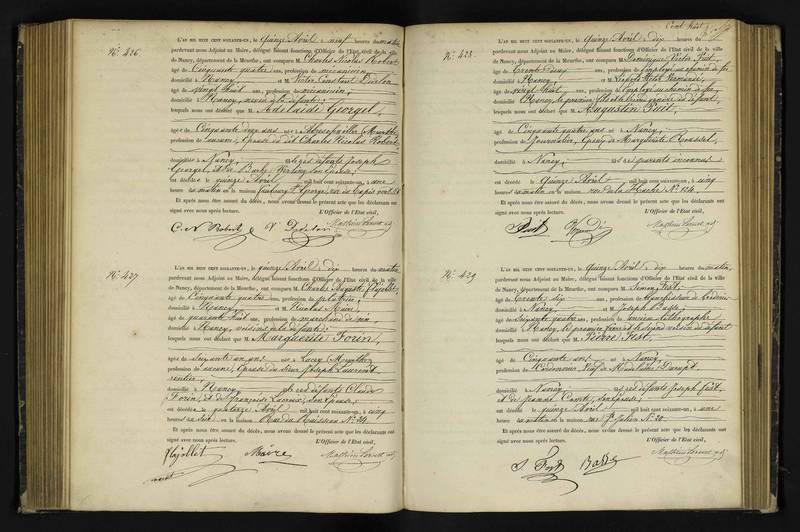 N.º 426
L'AN MIL HUIT CENT SOIXANTE-UN, le quinze Avril, neuf heures du matin
pardevant nous Adjoint au Maire, délégué faisant fonctions d'Officier de l'Etat civil de la ville
de Nancy, département de la Meurthe, ont comparu M. Charles Nicolas Robert
âgé de Cinquante quatre ans, profession de mécanicien
domicilié à Nancy, et M. Victor Constant
âgé de vingt huit ans, profession de mécanicien,
domicilié à Nancy, neveu de la défunte;
lesquels nous ont déclaré que M. Adélaïde Georgel,
âgée de Cinquante deux ans née à Abreschwiller (Meurthe)
profession de aucune, Epouse du dit Charles Nicolas Robert,
domiciliée à Nancy, fille des défunts Joseph
Georgel, et de Barbe son épouse;
est décédée le quinze Avril mil huit cent soixante-un, à une
heure du matin en la maison faubourg St. George,
Et après nous être assuré du décès, nous avons dressé le présent acte que les déclarants ont
signé avec nous après lecture. L'Officier de l'Etat civil,
C. N. Robert V.
N.º 427
L'AN MIL HUIT CENT SOIXANTE-UN, le quinze Avril, dix heures du matin,
pardevant nous Adjoint au Maire, délégué faisant fonctions d'Officier de l'Etat civil de la ville
de Nancy, département de la Meurthe, ont comparu M. Charles Auguste Flajollet,
âgé de Cinquante quatre ans, profession de plâtrier,
domicilié à Nancy, et M. Nicolas Maire,
âgé de quarante huit ans, profession de marchand de vin
domicilié à Nancy, voisins de la défunte;
lesquels nous ont déclaré que M. Marguerite Forin,
âgée de Soixante un ans née à Lucey (Meurthe)
profession de aucune, Epouse du Sieur Joseph Laurent
rentier,
domiciliée à Nancy, fille des défunts Claude
Forin, et de Françoise Lacroix, son Epouse;
est décédée le quatorze Avril mil huit cent soixante-un, à cinq
heures du soir en la maison Rue du Ruisseau N.º 24.
Et après nous être assuré du décès, nous avons dressé le présent acte que les déclarants ont
signé avec nous après lecture. L'Officier de l'Etat civil,
Flajollet Maire
N.º 428
L'AN MIL HUIT CENT SOIXANTE-UN, le quinze Avril, dix heures du
pardevant nous Adjoint au Maire, délégué faisant fonctions d'Officier de l'Etat civil de la ville
de Nancy, département de la Meurthe, ont comparu M. Dominique Victor
âgé de Trente deux ans, profession de Employé au chemin de fer
domicilié à Nancy, et M. Joseph
âgé de vingt huit ans, profession de Employé au chemin de fer,
domicilié à Nancy, le premier fils et le second gendre du défunt,
lesquels nous ont déclaré que M. Augustin
âgé de Cinquante quatre ans né à Nancy,
profession de Journalier, Epoux de Marguerite Roussel
domicilié à Nancy, fils de parents inconnus
est décédé le quinze Avril mil huit cent soixante-un, à cinq
heures du matin en la maison rue de la Hache N.º 104.
Et après nous être assuré du décès, nous avons dressé le présent acte que les déclarants ont
signé avec nous après lecture. L'Officier de l'Etat civil,
N.º 429
L'AN MIL HUIT CENT SOIXANTE-UN, le quinze Avril, dix heures du matin,
pardevant nous Adjoint au Maire, délégué faisant fonctions d'Officier de l'Etat civil de la ville
de Nancy, département de la Meurthe, ont comparu M. Simon
âgé de Trente Six ans, profession de
domicilié à Nancy, et M. Joseph
âgé de Soixante quatre ans, profession de ancien lithographe
domicilié à Nancy, le premier fils et le second voisin du défunt
lesquels nous ont déclaré que M. Pierre
âgé de Cinquante ans né à Nancy,
profession de Cordonnier, Veuf de Madelaine
domicilié à Nancy, fils des défunts Joseph
et de Jeanne son Epouse;
est décédé le quinze Avril mil huit cent soixante-un, à une
heure du matin en la maison rue St. Julien N.º 20
Et après nous être assuré du décès, nous avons dressé le présent acte que les déclarants ont
signé avec nous après lecture. L'Officier de l'Etat civil,